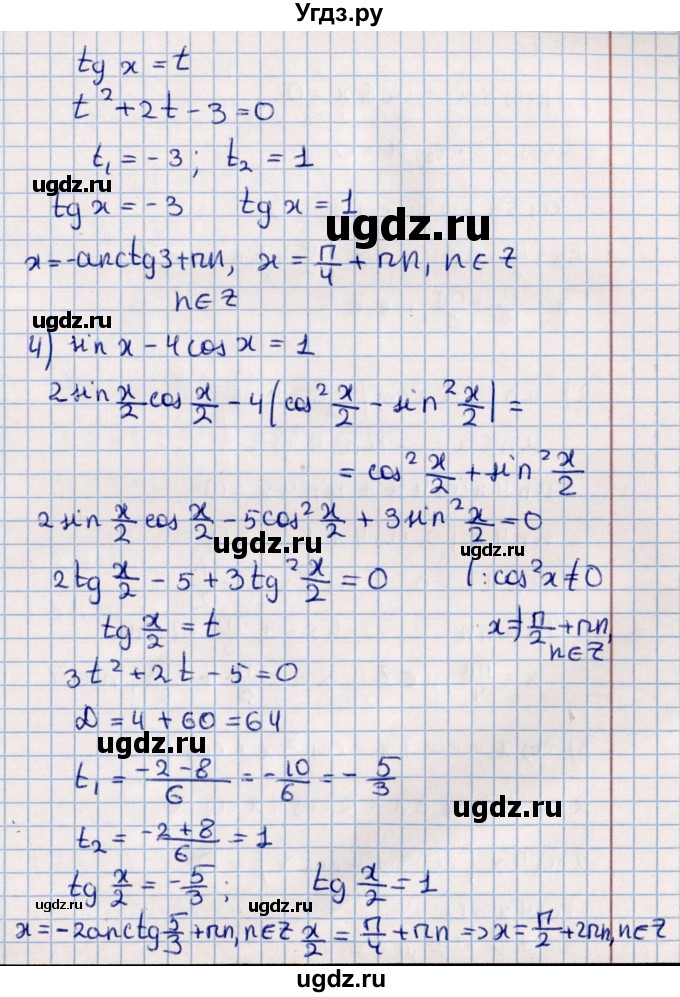 Угдз.ру
tg x = t
t² + 2t - 3 = 0
t₁ = -3; t₂ = 1
ugdz.ru
tg x = -3 tg x = 1
ugdz.ru
x = -arctg3 + πn, x = π/4 + πn, n ∈ Z
n ∈ Z
4) sin x - 4 cos x = 1
2 sin x/2 cos x/2 - 4(cos² x/2 - sin² x/2) =
ugdz.ru
= cos² x/2 + sin² x/2
2 sin x/2 cos x/2 - 5cos² x/2 + 3 sin² x/2 = 0
ugdz.ru
2tg x/2 - 5 + 3tg² x/2 = 0 (: cos²x ≠ 0
tg x/2 = t x ≠ π/2 + πn,
n ∈ Z
3t² + 2t - 5 = 0
D = 4 + 60 = 64
ugdz.ru
t₁ = (-2 - 8)/6 = -10/6 = -5/3
ugdz.ru
t₂ = (-2 + 8)/6 = 1
tg x/2 = -5/3; tg x/2 = 1
ugdz.ru
x = -2arctg 5/3 + πn, n ∈ Z x/2 = π/4 + πn => x = π/2 + 2πn, n ∈ Z
ugdz.ru